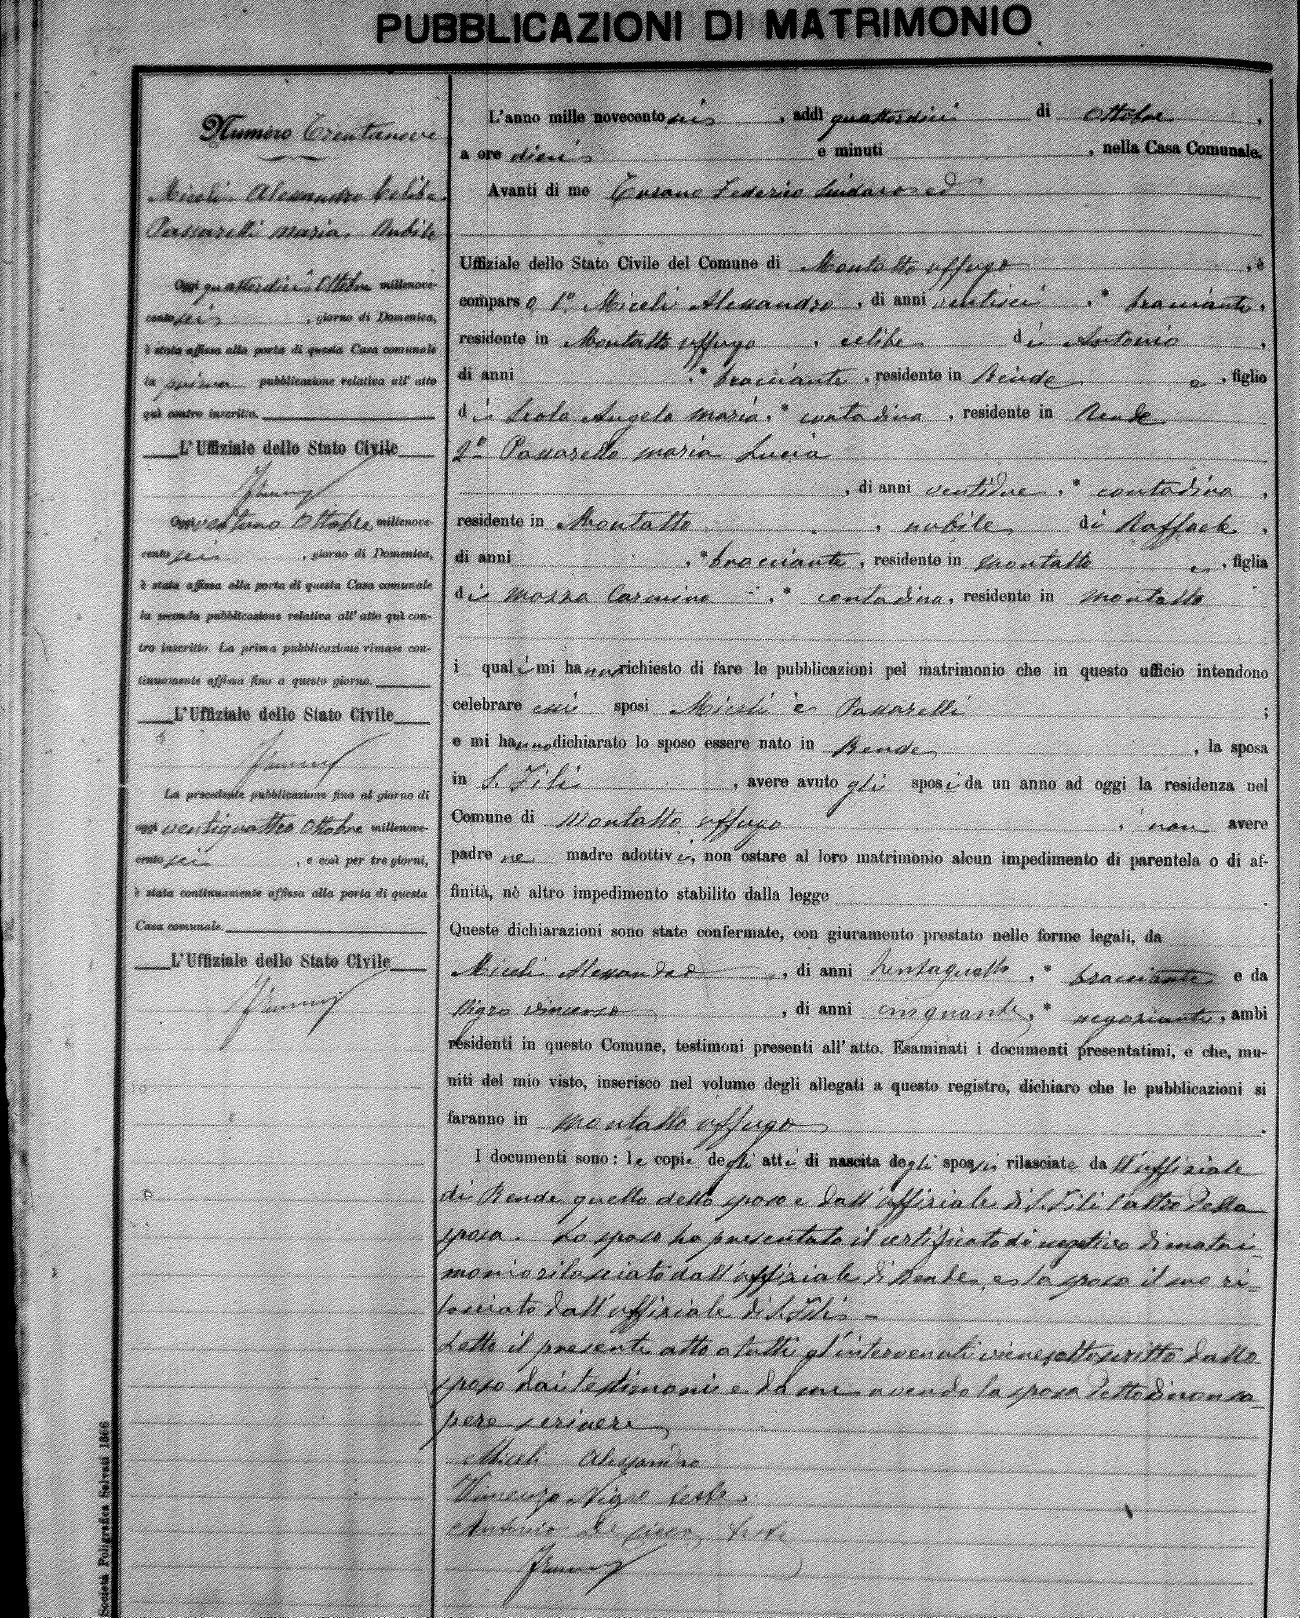 PUBBLICAZIONI DI MATRIMONIO
Numero Trentanove
Miceli Alessandro Celibe
Passarelli Maria Nubile
Oggi quattordici Ottobre millenove-
cento sei, giorno di Domenica,
è stata affissa alla porta di questa Casa comunale
la prima pubblicazione relativa all' atto
quì contro inscritto.
L'Uffiziale dello Stato Civile
Oggi ventuno Ottobre millenove-
cento sei, giorno di Domenica,
è stata affissa alla porta di questa Casa comunale
la seconda pubblicazione relativa all' atto quì con-
tro inscritto. La prima pubblicazione rimase con-
tinuamente affissa fino a questo giorno.
L'Uffiziale dello Stato Civile
La precedente pubblicazione fino al giorno di
oggi ventiquattro Ottobre millenove-
cento sei, e così per tre giorni,
è stata continuamente affissa alla porta di questa
Casa comunale.
L'Uffiziale dello Stato Civile
Società Poligrafica Salvati 1866
L'anno mille novecento sei, addì quattordici di Ottobre,
a ore dieci e minuti , nella Casa Comunale.
Avanti di me Federico Sindaco ed
Uffiziale dello Stato Civile del Comune di Montalto Uffugo, è
comparso 1° Miceli Alessandro, di anni ventisei, bracciante,
residente in Montalto Uffugo, celibe di Antonio,
di anni , bracciante, residente in Rende e, figlio
di Scola Angela Maria, contadina, residente in Rende
2° Passarello Maria Lucia
, di anni ventidue, contadina,
residente in Montalto, nubile di Raffaele,
di anni , bracciante, residente in Montalto e, figlia
di Mazza Carmina, contadina, residente in Montalto
i quali mi hanno richiesto di fare le pubblicazioni pel matrimonio che in questo ufficio intendono
celebrare essi sposi Miceli e Passarelli;
e mi hanno dichiarato lo sposo essere nato in Rende, la sposa
in S. Fili, avere avuto gli sposi da un anno ad oggi la residenza nel
Comune di Montalto Uffugo, non avere
padre ne madre adottivi, non ostare al loro matrimonio alcun impedimento di parentela o di af-
finità, nè altro impedimento stabilito dalla legge
Queste dichiarazioni sono state confermate, con giuramento prestato nelle forme legali, da
Miceli Alessandro, di anni trentaquattro, bracciante e da
Nigro Vincenzo, di anni cinquanta, negoziante, ambi
residenti in questo Comune, testimoni presenti all' atto. Esaminati i documenti presentatimi, e che, mu-
niti del mio visto, inserisco nel volume degli allegati a questo registro, dichiaro che le pubblicazioni si
faranno in Montalto Uffugo.
I documenti sono: le copie degli atti di nascita degli sposi rilasciate dall'uffiziale
di Rende quello dello sposo e dall'uffiziale di S. Fili l'altro della
sposa. Lo sposo ha presentato il certificato di negativo di matri-
monio rilasciato dall'uffiziale di Rende, e la sposa il suo ri-
lasciato dall'uffiziale di S. Fili
Letto il presente atto a tutti gl'intervenuti viene sottoscritto dallo
sposo dai testimoni e da me avendo la sposa detto di non sa-
pere scrivere
Miceli Alessandro
Vincenzo Nigro teste
Antonio teste